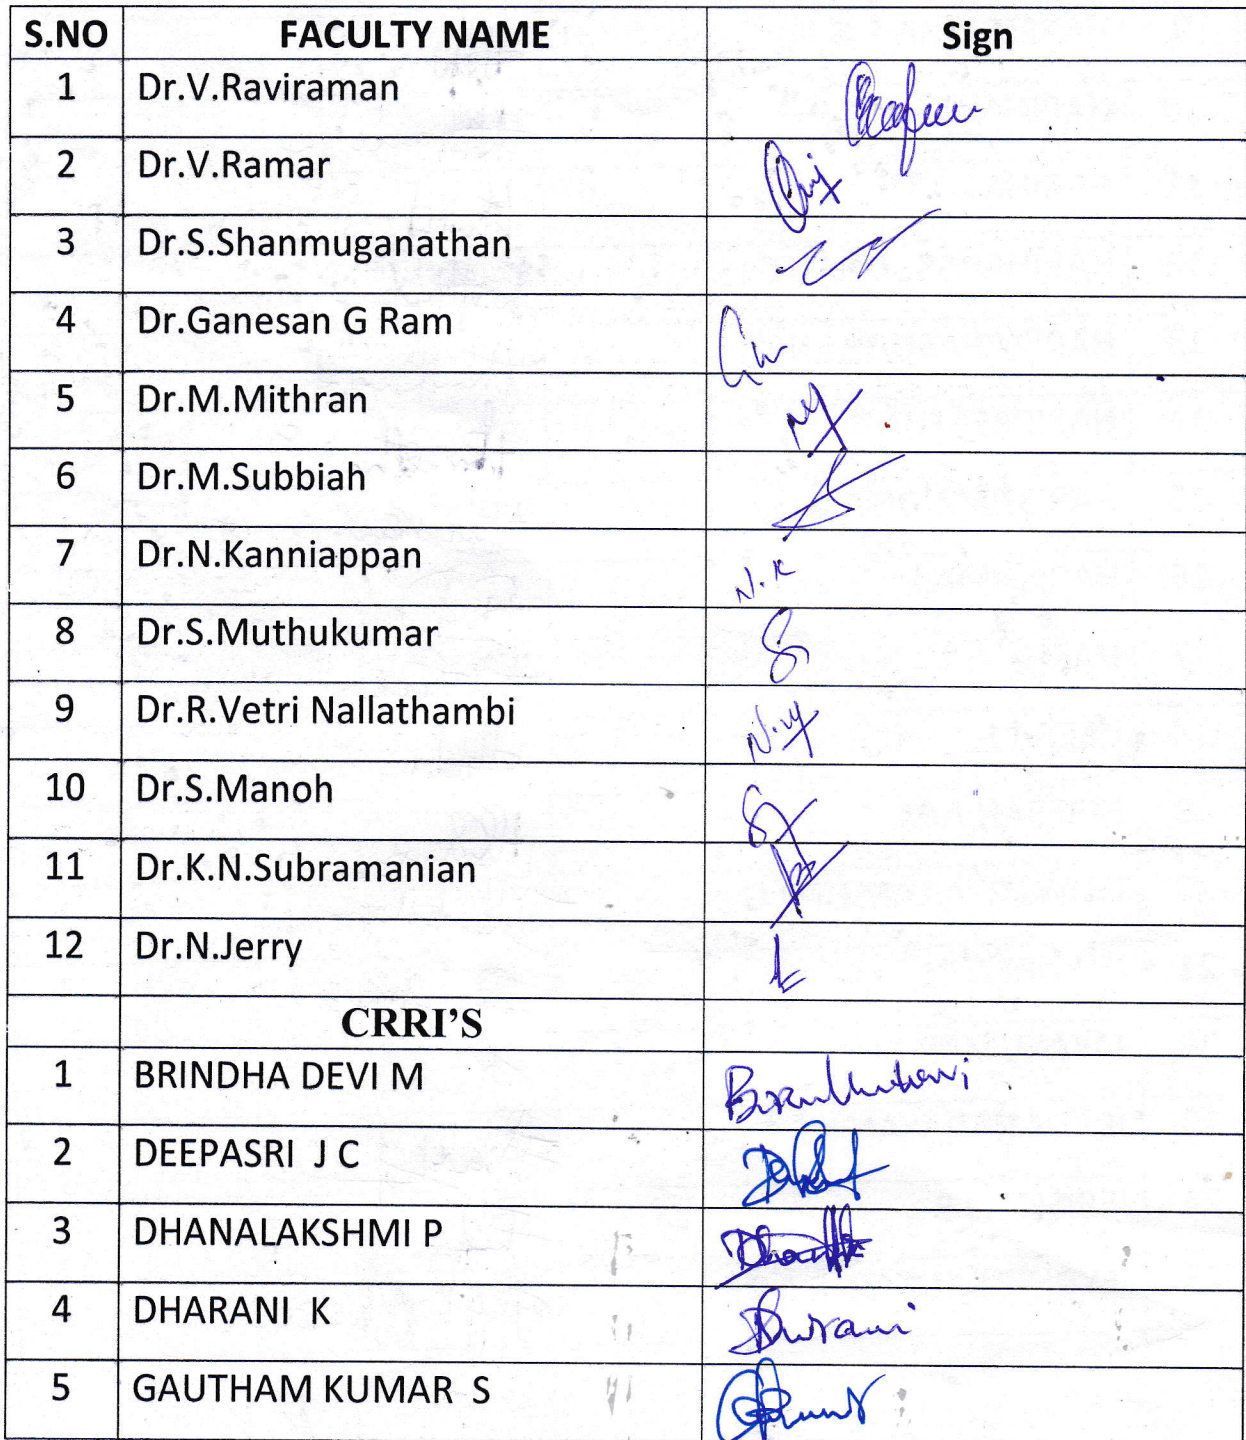 S.NO FACULTY NAME Sign
1 Dr.V.Raviraman
2 Dr.V.Ramar
3 Dr.S.Shanmuganathan
4 Dr.Ganesan G Ram
5 Dr.M.Mithran
6 Dr.M.Subbiah
7 Dr.N.Kanniappan N.K
8 Dr.S.Muthukumar
9 Dr.R.Vetri Nallathambi
10 Dr.S.Manoh
11 Dr.K.N.Subramanian
12 Dr.N.Jerry
CRRI’S
1 BRINDHA DEVI M
2 DEEPASRI J C
3 DHANALAKSHMI P
4 DHARANI K Dharani
5 GAUTHAM KUMAR S